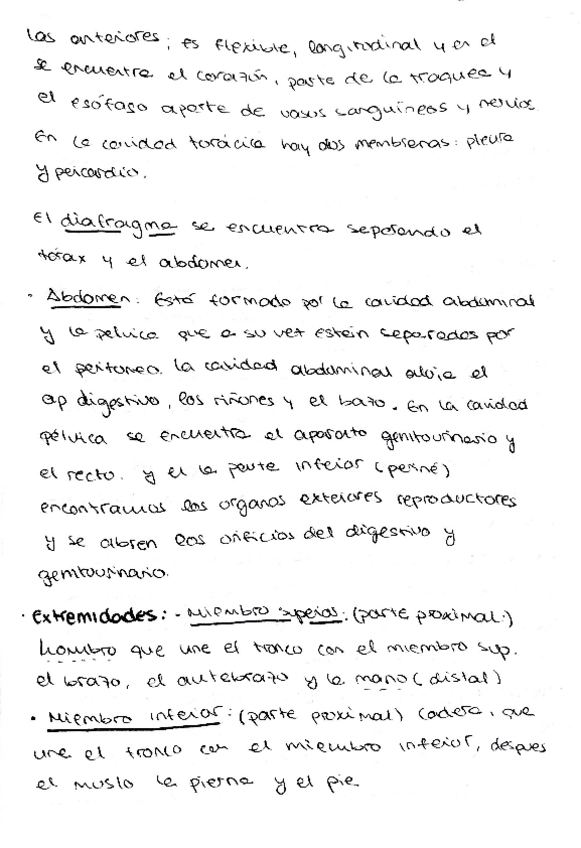 las anteriores; es flexible, longitudinal y en el
se encuentra el corazón, parte de la traquea y
el esófago aparte de vasos sanguíneos y nervios.
En la cavidad torácica hay dos membranas: pleura
y pericardio.
El diafragma se encuentra separando el
tórax y el abdomen.
· Abdomen: Está formado por la cavidad abdominal
y la pelvica que a su vez estein separados por
el peritoneo. la cavidad abdominal aloja el
ap digestivo, los riñones y el bazo. En la cavidad
pélvica se encuentra el aparato genitourinario y
el recto. y el la parte inferior (periné)
encontramos los organos exteriores reproductores
y se abren los orificios del digestivo y
genitourinario.
· Extremidades: - Miembro superior: (parte proximal.)
hombro que une el tronco con el miembro sup.
el brazo, el antebrazo y la mano (distal)
· Miembro inferior: (parte proximal) Cadera, que
une el tronco con el miembro inferior, despues
el muslo la pierna y el pie